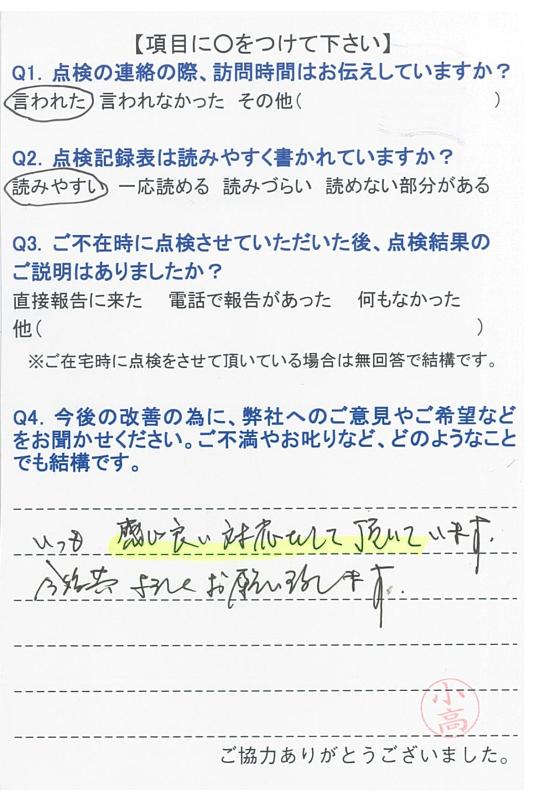 【項目に〇をつけて下さい】
Q1. 点検の連絡の際、訪問時間はお伝えしていますか？
言われた 言われなかった その他（ ）
Q2. 点検記録表は読みやすく書かれていますか？
読みやすい 一応読める 読みづらい 読めない部分がある
Q3. ご不在時に点検させていただいた後、点検結果の
ご説明はありましたか？
直接報告に来た 電話で報告があった 何もなかった
他（ ）
※ご在宅時に点検をさせて頂いている場合は無回答で結構です。
Q4. 今後の改善の為に、弊社へのご意見やご希望など
をお聞かせください。ご不満やお叱りなど、どのようなこと
でも結構です。
いつも 感じ良い対応をして頂いています。
今後共 よろしくお願い致します。
小高
ご協力ありがとうございました。